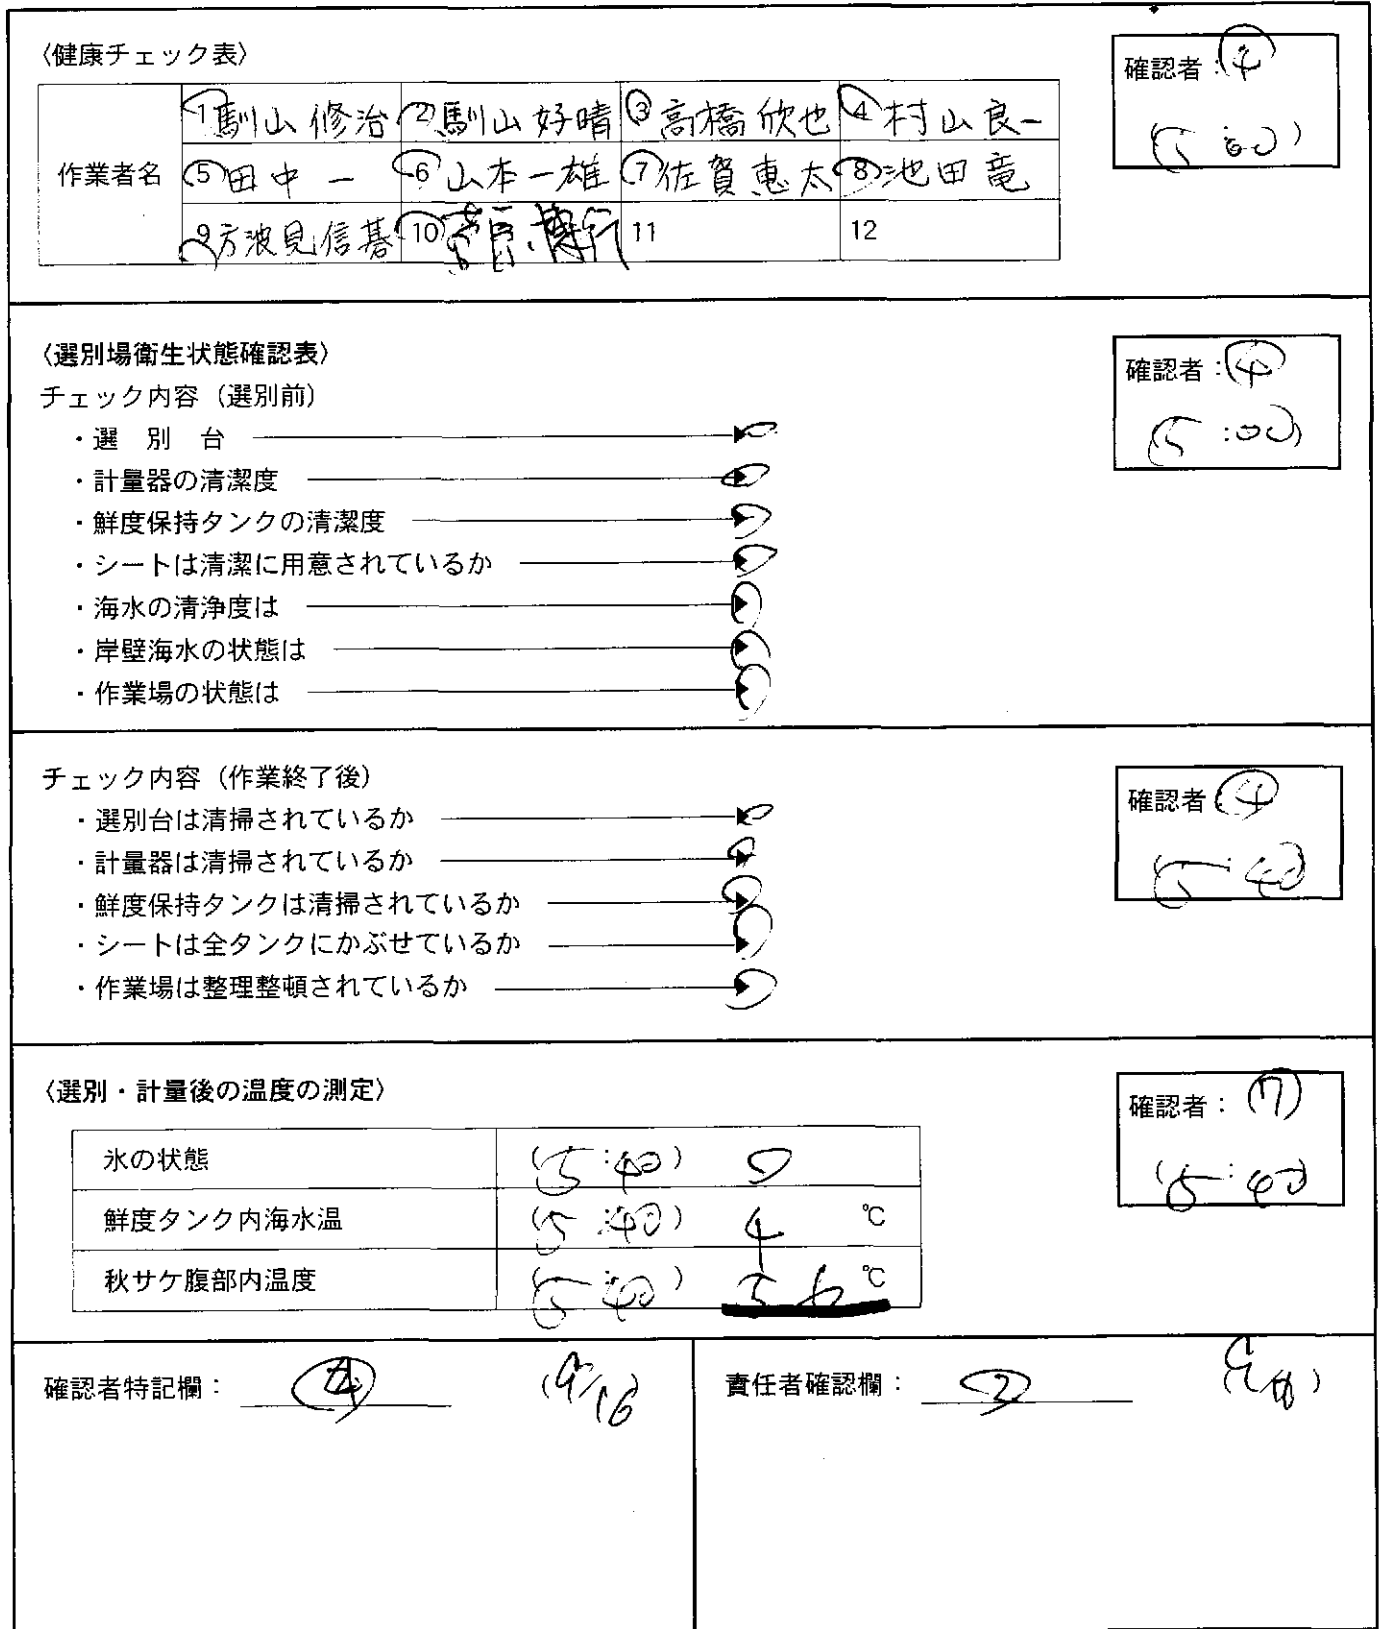 〈健康チェック表〉
確認者：④
(5:00)
作業者名
①馴山修治 ②馴山好晴 ③高橋欣也 ④村山良一
⑤田中一 ⑥山本一雄 ⑦佐賀恵太 ⑧池田竜
⑨方波見信碁 ⑩ 博行 11 12
〈選別場衛生状態確認表〉
確認者：④
(5:00)
チェック内容（選別前）
・選 別 台
・計量器の清潔度
・鮮度保持タンクの清潔度
・シートは清潔に用意されているか
・海水の清浄度は
・岸壁海水の状態は
・作業場の状態は
チェック内容（作業終了後）
確認者：④
(5:40)
・選別台は清掃されているか
・計量器は清掃されているか
・鮮度保持タンクは清掃されているか
・シートは全タンクにかぶせているか
・作業場は整理整頓されているか
〈選別・計量後の温度の測定〉
確認者：⑦
(5:40)
氷の状態 (5:40) ○
鮮度タンク内海水温 (5:40) 4 ℃
秋サケ腹部内温度 (5:40) 5.6 ℃
確認者特記欄： ④ (9/16)
責任者確認欄： ②